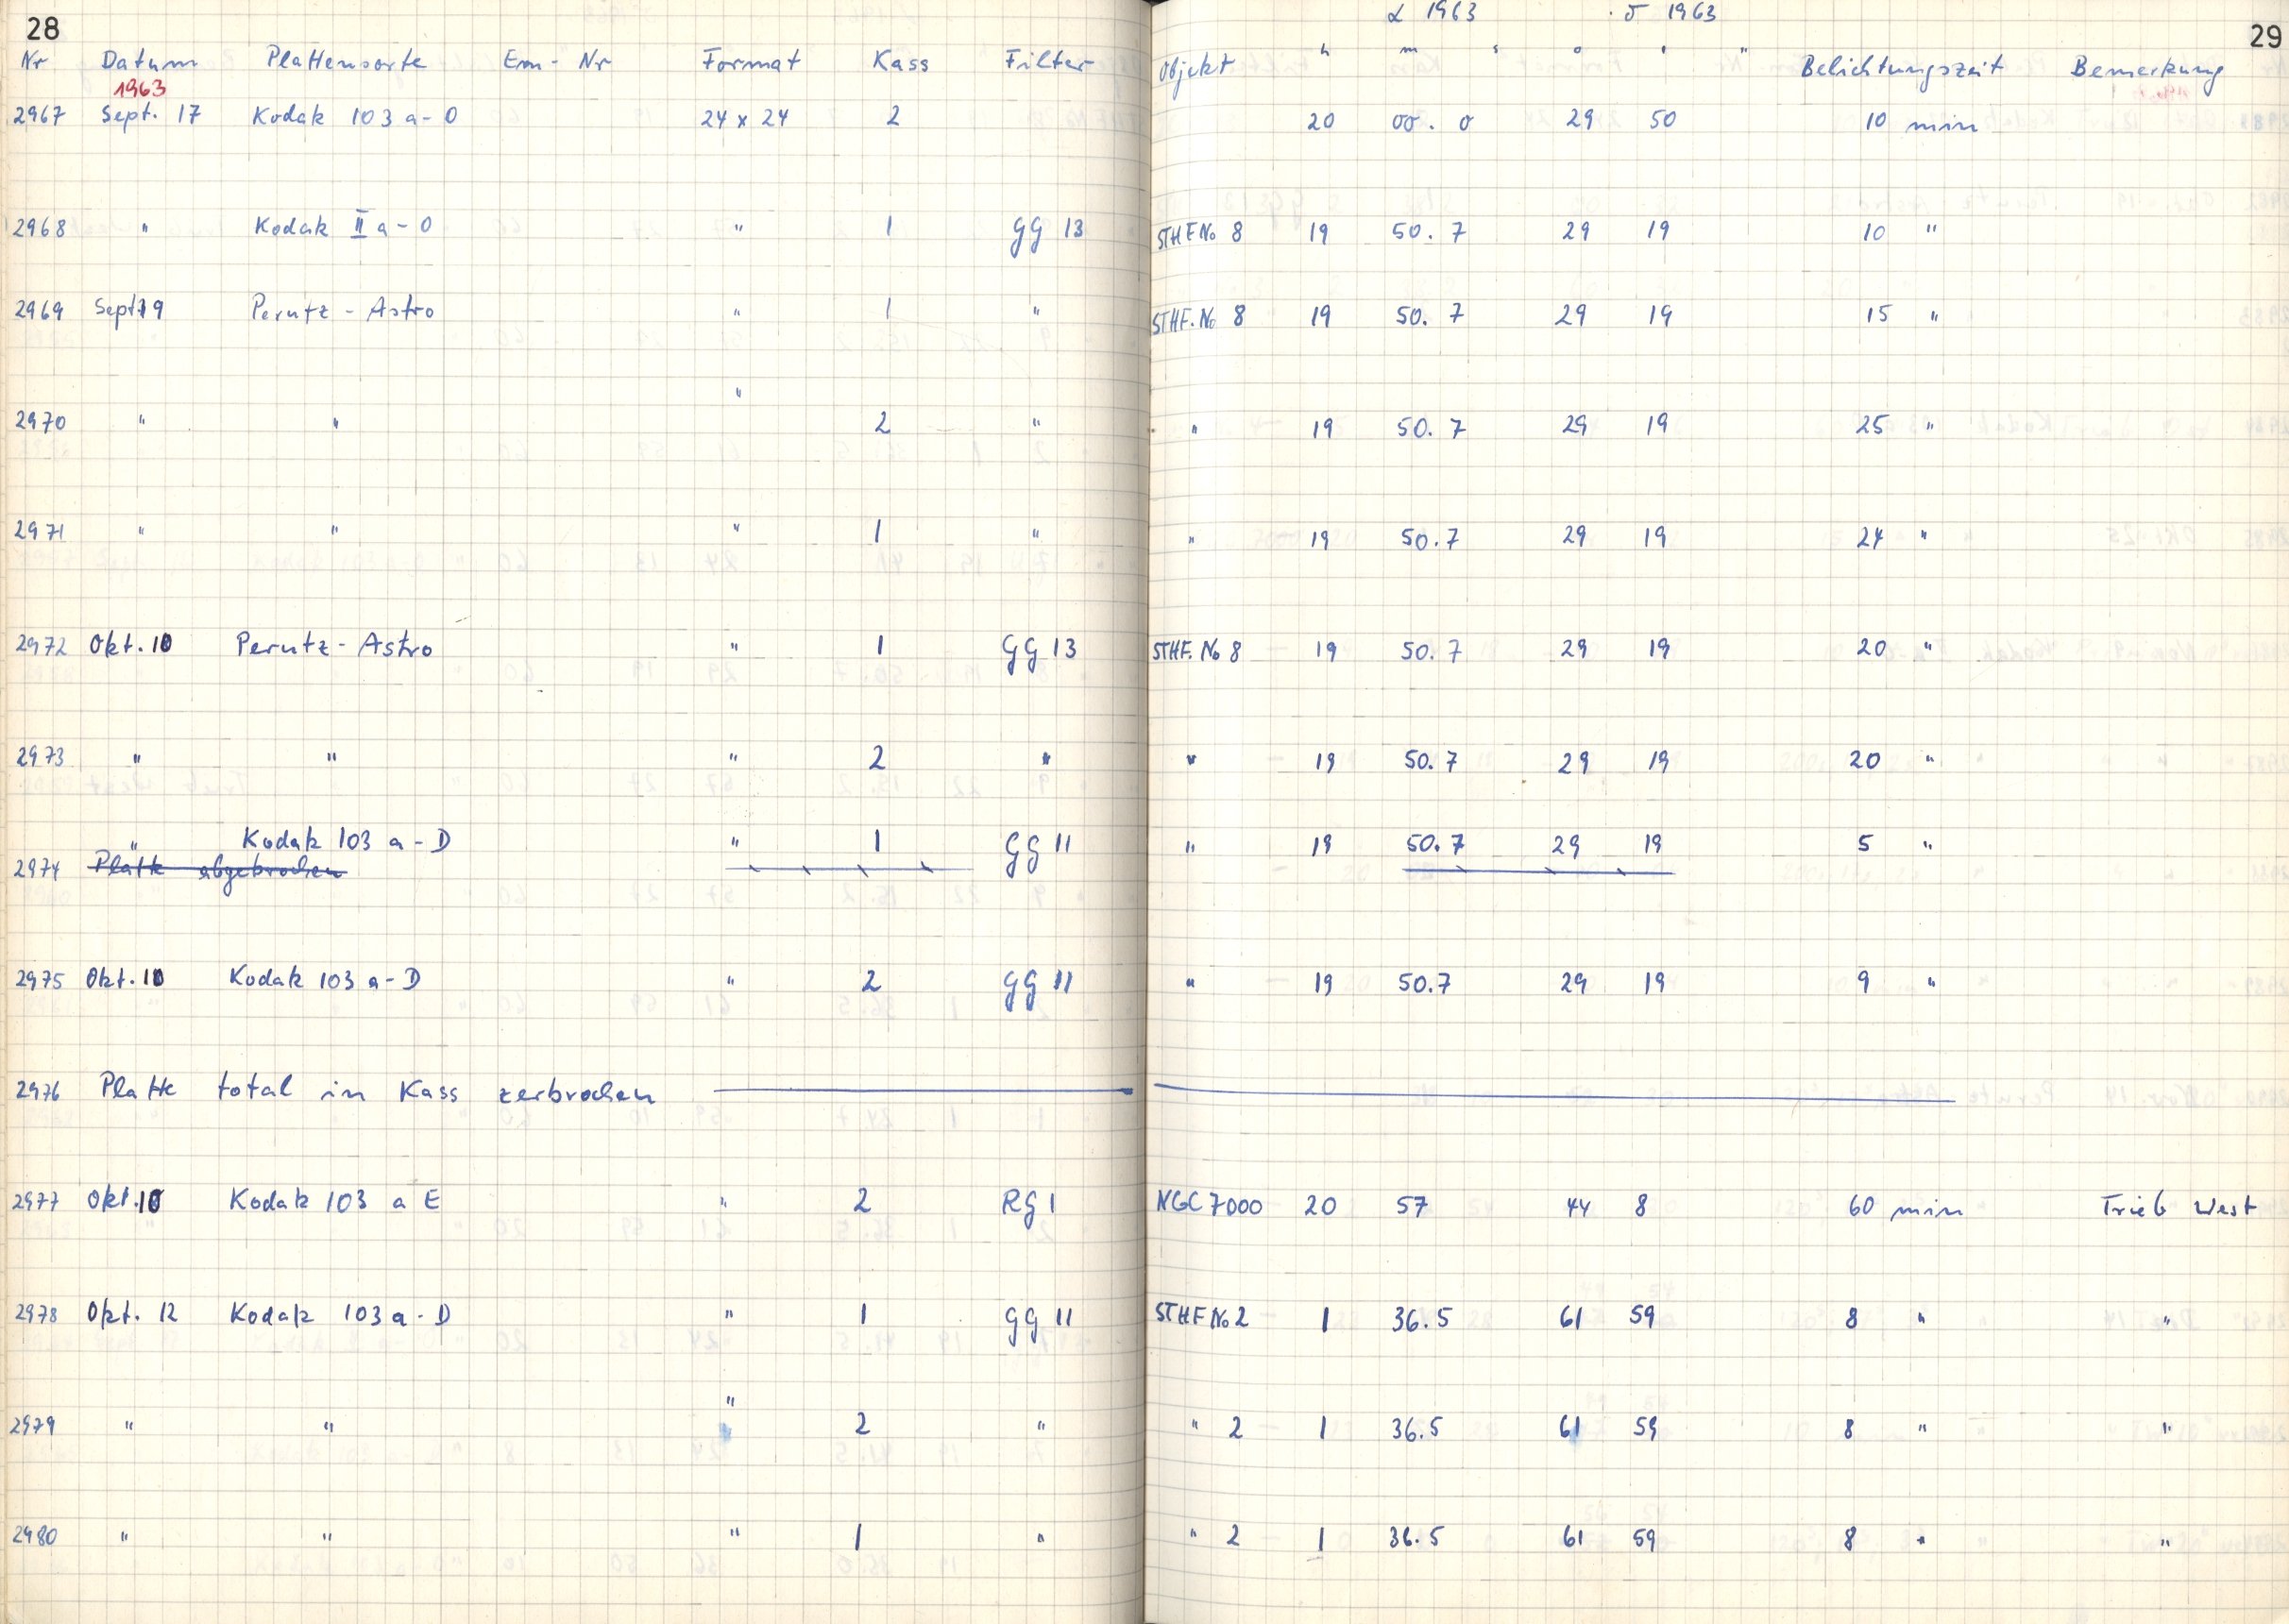 28
Nr Datum Plattensorte Em- Nr Format Kass Filter
1963
2967 Sept. 17 Kodak 103 a-O 24 x 24 2
2968 " Kodak II a-O " 1 GG 13
2969 Sept 19 Perutz - Astro " 1 "
2970 " " " 2 "
2971 " " " 1 "
2972 Okt. 10 Perutz - Astro " 1 GG 13
2973 " " " 2 "
" Kodak 103 a-D " 1 GG 11
2974 Platte abgebrochen
2975 Okt. 10 Kodak 103 a-D " 2 GG 11
2976 Platte total in Kass zerbrochen
2977 Okt. 10 Kodak 103 a E " 2 RG 1
2978 Okt. 12 Kodak 103 a-D " 1 GG 11
2979 " " " 2 "
2980 " " " 1 "
29
α 1963 δ 1963
Objekt h m s ° ' " Belichtungszeit Bemerkung
20 00.0 29 50 10 min
STHF No 8 19 50.7 29 19 10 "
STHF. No 8 19 50.7 29 19 15 "
" 19 50.7 29 19 25 "
" 19 50.7 29 19 24 "
STHF. No 8 19 50.7 29 19 20 "
" 19 50.7 29 19 20 "
" 19 50.7 29 19 5 "
" 19 50.7 29 19 9 "
NGC 7000 20 57 44 8 60 min Trieb West
STHF No 2 1 36.5 61 59 8 " "
" 2 1 36.5 61 59 8 " "
" 2 1 36.5 61 59 8 " "